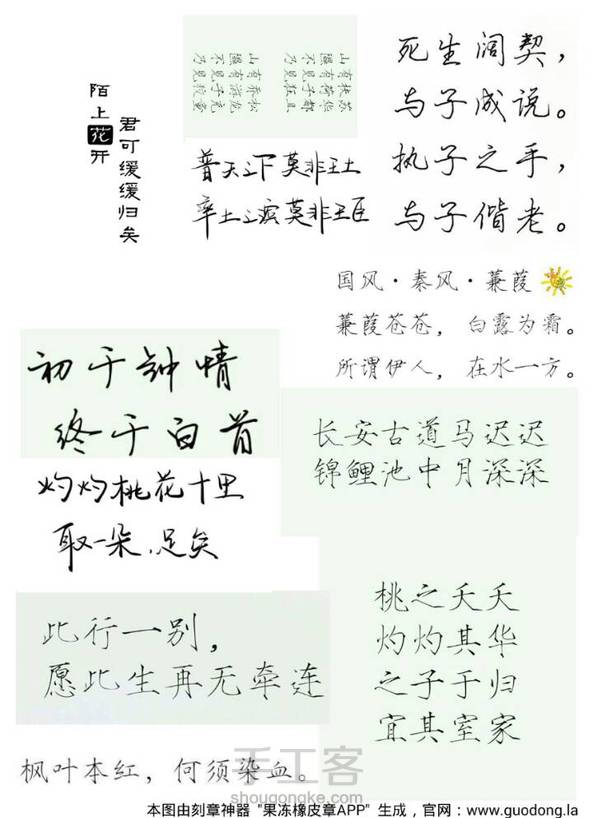 山有扶苏
隰有荷华
不见子都
乃见狂且
山有乔松
隰有游龙
不见子充
乃见狡童
陌上花开
君可缓缓归矣
普天之下莫非王土
率土之滨莫非王臣
死生阔契，
与子成说。
执子之手，
与子偕老。
国风·秦风·蒹葭
蒹葭苍苍，白露为霜。
所谓伊人，在水一方。
初于钟情
终于白首
灼灼桃花十里
取一朵足矣
长安古道马迟迟
锦鲤池中月深深
此行一别，
愿此生再无牵连
桃之夭夭
灼灼其华
之子于归
宜其室家
枫叶本红，何须染血。
手工客
shougongke.com
本图由刻章神器 "果冻橡皮章APP" 生成，官网：www.guodong.la